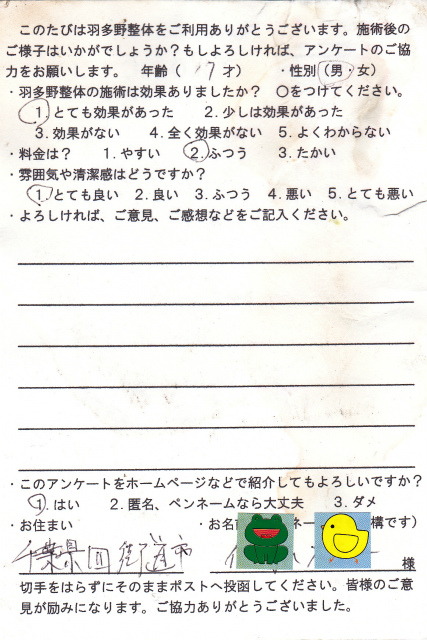 このたびは羽多野整体をご利用ありがとうございます。施術後の
ご様子はいかがでしょうか？もしよろしければ、アンケートのご協
力をお願いします。 年齢（ 17才） ・性別（男・女）
・羽多野整体の施術は効果ありましたか？ 〇をつけてください。
1.とても効果があった 2.少しは効果があった
3.効果がない 4.全く効果がない 5.よくわからない
・料金は？ 1.やすい 2.ふつう 3.たかい
・雰囲気や清潔感はどうですか？
1.とても良い 2.良い 3.ふつう 4.悪い 5.とても悪い
・よろしければ、ご意見、ご感想などをご記入ください。
・このアンケートをホームページなどで紹介してもよろしいですか？
1.はい 2.匿名、ペンネームなら大丈夫 3.ダメ
・お住まい ・お名 ネー 構です）
千葉県四街道市 様
切手をはらずにそのままポストへ投函してください。皆様のご意
見が励みになります。ご協力ありがとうございました。